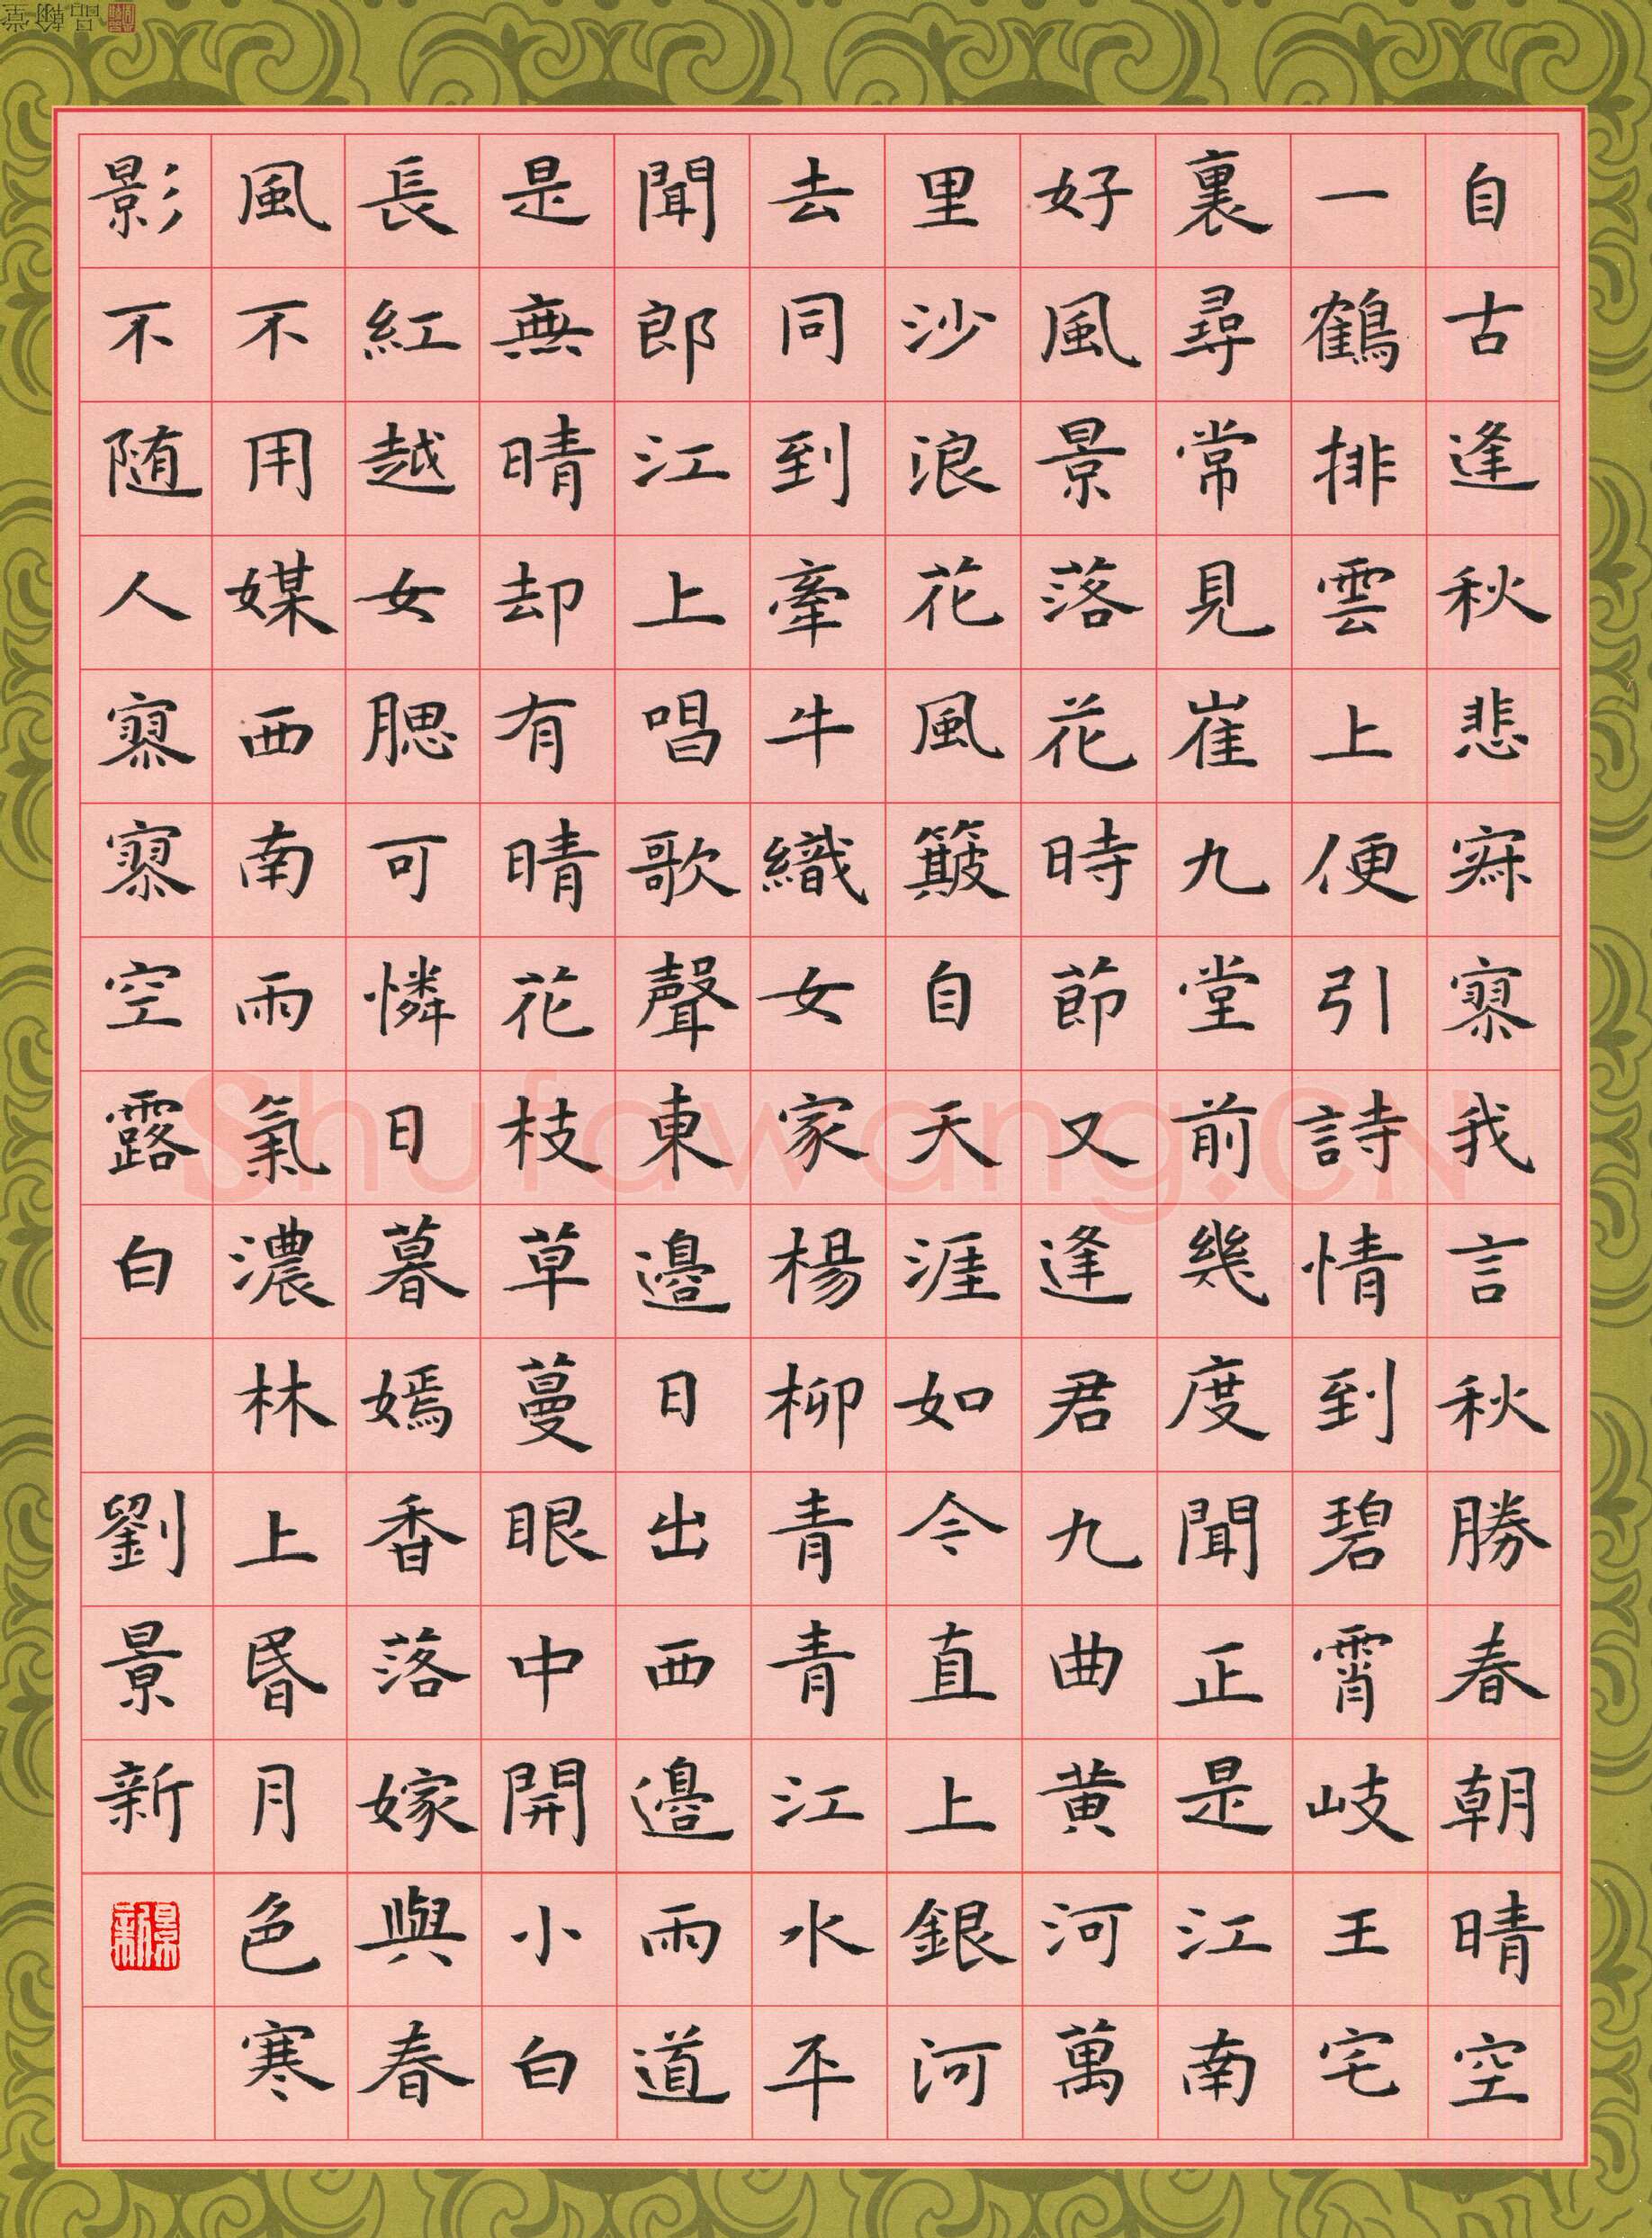 自古逢秋悲寂寥我言秋勝春朝晴空
一鶴排雲上便引詩情到碧霄岐王宅
裏尋常見崔九堂前幾度聞正是江南
好風景落花時節又逢君九曲黄河萬
里沙浪花風簸自天涯如今直上銀河
去同到牽牛織女家楊柳青青江水平
聞郎江上唱歌聲東邊日出西邊雨道
是無晴却有晴花枝草蔓眼中開小白
長紅越女腮可憐日暮嫣香落嫁與春
風不用媒西南雨氣濃林上昏月色寒
影不随人寥寥空露白 劉景新
景新
Shufawang.CN